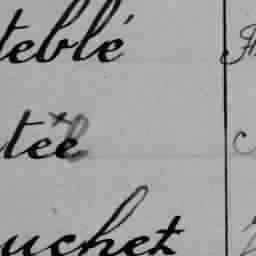 teblé
tée
uchet